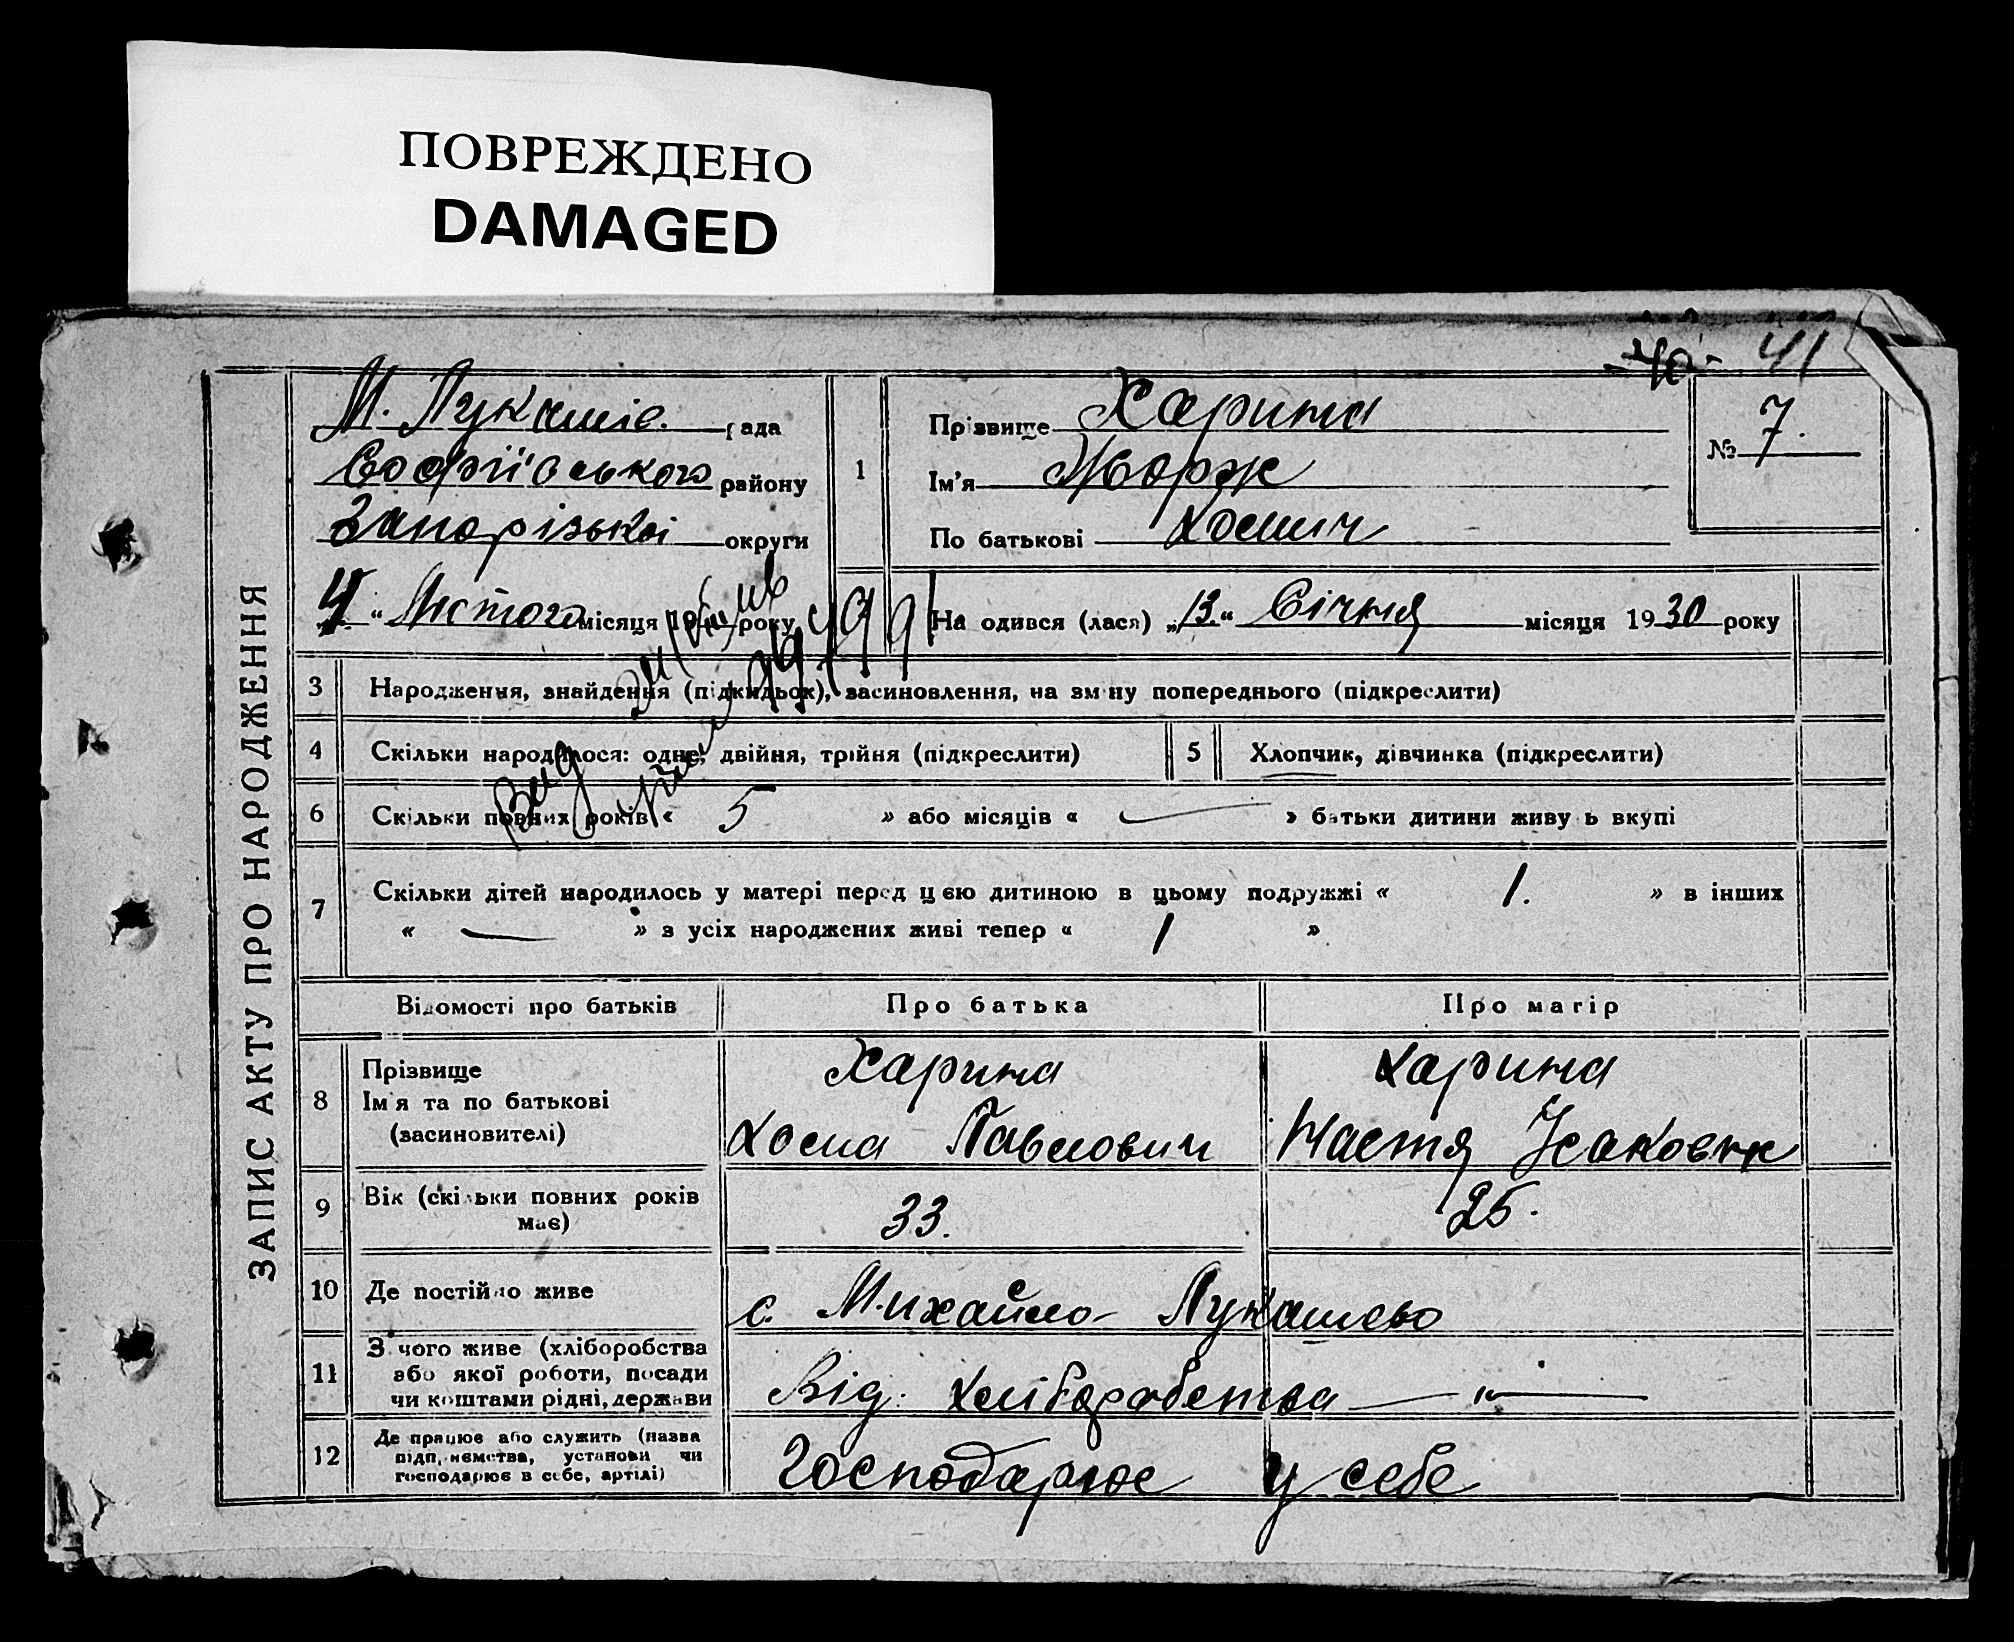 ПОВРЕЖДЕНО
DAMAGED
41
ЗАПИС АКТУ ПРО НАРОДЖЕННЯ
М. Лукашів. рада
Софіївського району
Запорізької округи
4 " Лютого місяця року
1
Прізвище Харина
Ім'я Жорж
По батькові Хомич
№ 7.
На одився (лася) „13.“ Січня місяця 1930 року
3 Народження, знайдення (підкидьок), засиновлення, на зміну попереднього (підкреслити)
4 Скільки народилося: одне, двійня, трійня (підкреслити)
5 Хлопчик, дівчинка (підкреслити)
6 Скільки повних років « 5 » або місяців « — » батьки дитини живуть вкупі
7 Скільки дітей народилось у матері перед цією дитиною в цьому подружжі « 1. » в інших
« — » з усіх народжених живі тепер « 1 »
Відомості про батьків Про батька Про матір
8 Прізвище
Ім'я та по батькові
(засиновителі)
Харина
Хома Павлович
Харина
Настя
9 Вік (скільки повних років
має)
33. 25.
10 Де постійно живе
с. Михайло-Лукашево
11 З чого живе (хліборобства
або якої роботи, посади
чи коштами рідні, держави
Від. хліборобства — " —
12 Де працює або служить (назва
підп,иємства, установи чи
господарює в себе, артілі)
Господарює у себе